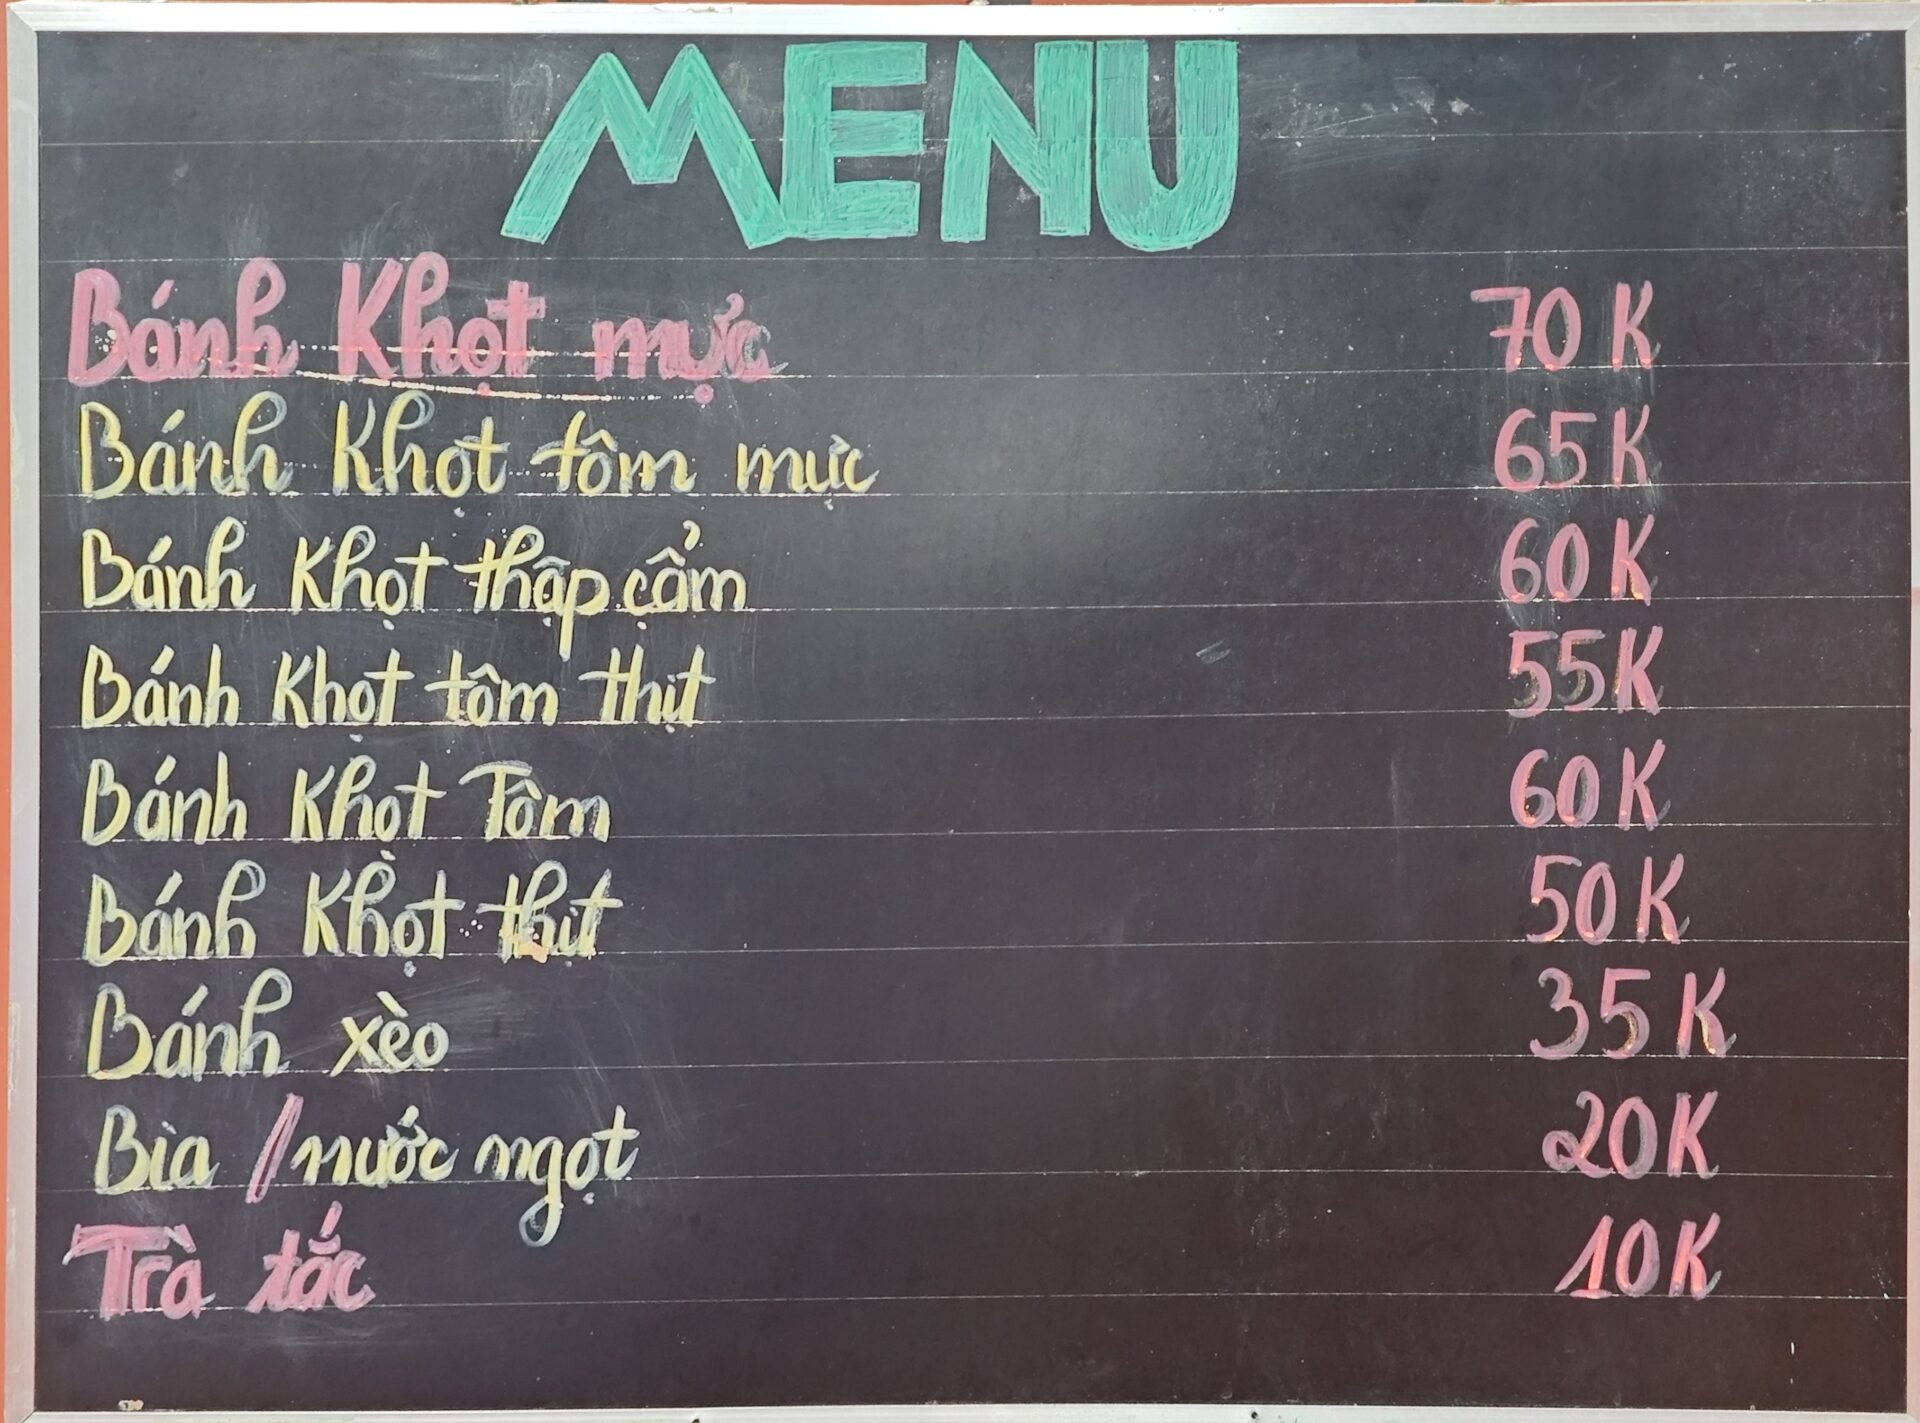 MENU
Bánh Khọt mực 70K
Bánh Khọt tôm mực 65K
Bánh Khọt thập cẩm 60K
Bánh Khọt tôm thịt 55K
Bánh Khọt Tôm 60K
Bánh Khọt thịt 50K
Bánh xèo 35K
Bia / nước ngọt 20K
Trà tắc 10K